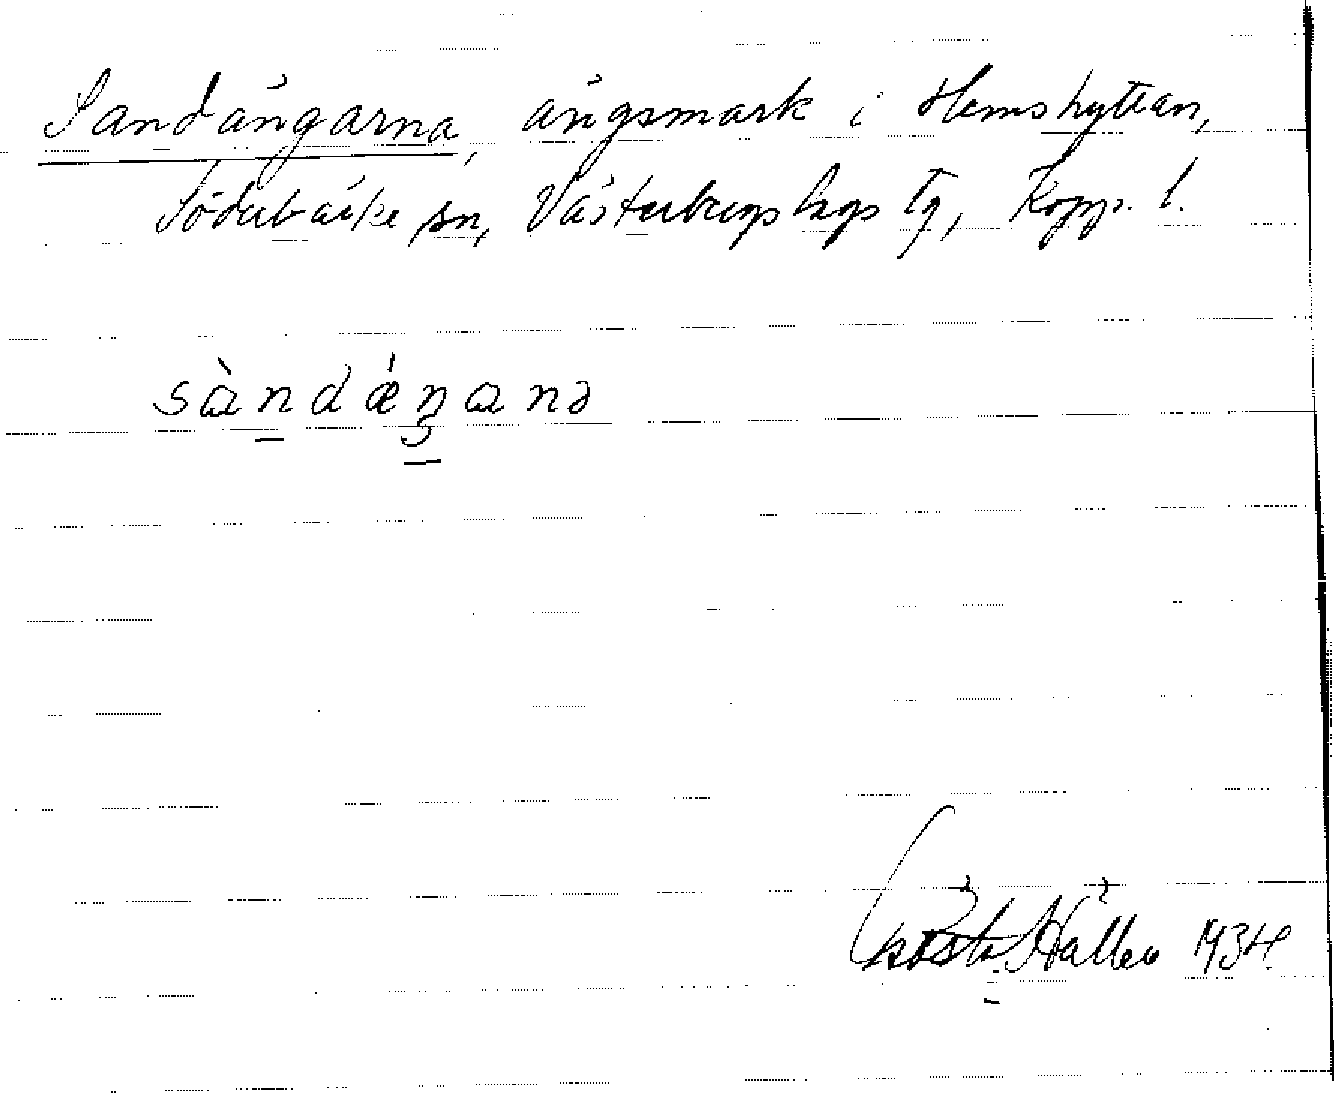 Sandängarna, ängsmark i Hemshyttan,
Söderbärke sn, Västerbergslags tg, Kopp. l.
sàndǽŋanə
Gösta Hallén 1934